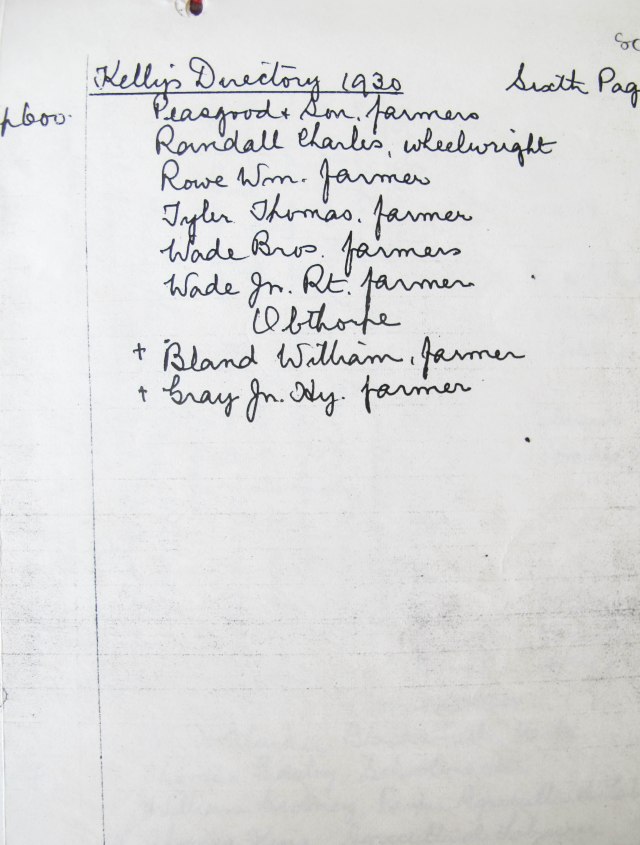 Kelly's Directory 1930 Sixth Pag
p600. Peasgood & Son. farmers
Randall Charles, wheelwright
Rowe Wm. farmer
Tyler Thomas. farmer
Wade Bros. farmers
Wade Jn. Rt. farmer
Obthorpe
+ Bland William, farmer
+ Gray Jn. Hy. farmer